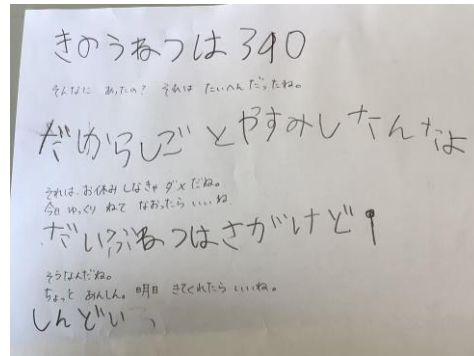 きのうねつは390
そんなに あったの？ それは たいへんだったね。
だからしごとやすみしたんだよ
それは、お休みしなきゃ ダメだね。
今日 ゆっくり ねて なおったら いいね
だいぶねつはさがけど
そうなんだね。
ちょっと あんしん。 明日 きてくれたら いいね。
しんどい、、